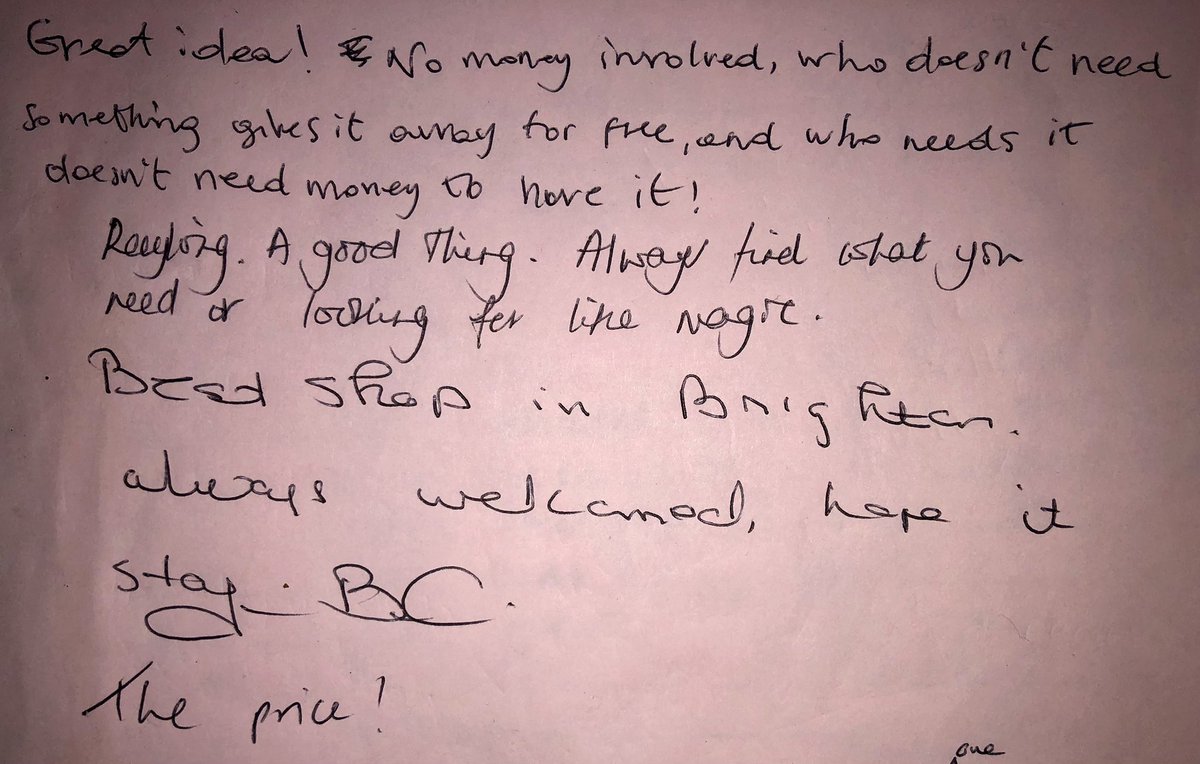 Great idea! No money involved, who doesn't need
something gives it away for free, and who needs it
doesn't need money to have it!
Recycling. A good Thing. Always find what you
need or looking for like magic.
Best shop in Brighton.
always welcomed, hope it
stay - BC.
The price!
one